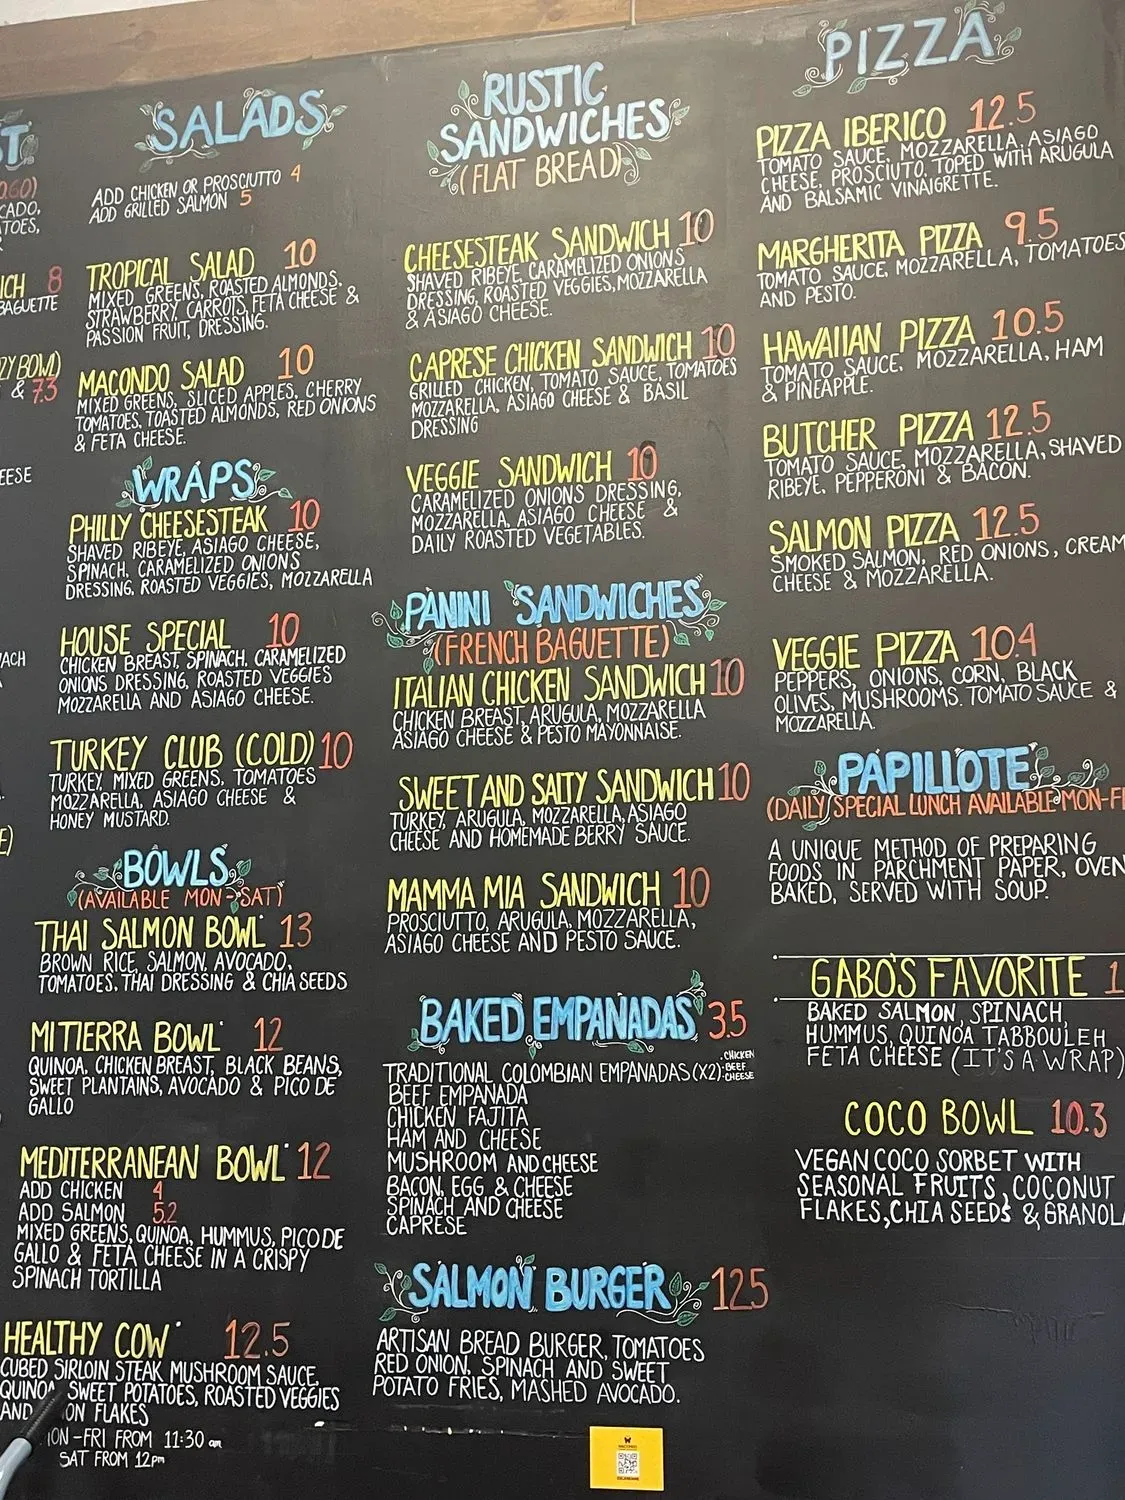 T
0.60)
CADO,
TOES,
ICH 8
BAGUETTE
ZY BOWL)
& 7.3
EESE
ACH
E)
SALADS
ADD CHICKEN OR PROSCIUTTO 4
ADD GRILLED SALMON 5
TROPICAL SALAD 10
MIXED GREENS, ROASTED ALMONDS,
STRAWBERRY, CARROTS, FETA CHEESE &
PASSION FRUIT, DRESSING.
MACONDO SALAD 10
MIXED GREENS, SLICED APPLES, CHERRY
TOMATOES, TOASTED ALMONDS, RED ONIONS
& FETA CHEESE.
WRAPS
PHILLY CHEESESTEAK 10
SHAVED RIBEYE, ASIAGO CHEESE,
SPINACH, CARAMELIZED ONIONS
DRESSING, ROASTED VEGGIES, MOZZARELLA
HOUSE SPECIAL 10
CHICKEN BREAST, SPINACH, CARAMELIZED
ONIONS DRESSING, ROASTED VEGGIES
MOZZARELLA AND ASIAGO CHEESE.
TURKEY CLUB (COLD) 10
TURKEY, MIXED GREENS, TOMATOES
MOZZARELLA, ASIAGO CHEESE &
HONEY MUSTARD.
BOWLS
(AVAILABLE MON-SAT)
THAI SALMON BOWL 13
BROWN RICE, SALMON, AVOCADO,
TOMATOES, THAI DRESSING & CHIA SEEDS
MITIERRA BOWL 12
QUINOA, CHICKEN BREAST, BLACK BEANS,
SWEET PLANTAINS, AVOCADO & PICO DE
GALLO
MEDITERRANEAN BOWL 12
ADD CHICKEN 4
ADD SALMON 5.2
MIXED GREENS, QUINOA, HUMMUS, PICO DE
GALLO & FETA CHEESE IN A CRISPY
SPINACH TORTILLA
HEALTHY COW 12.5
CUBED SIRLOIN STEAK MUSHROOM SAUCE,
QUINOA, SWEET POTATOES, ROASTED VEGGIES
AND ON FLAKES
ON-FRI FROM 11:30 am
SAT FROM 12pm
RUSTIC
SANDWICHES
(FLAT BREAD)
CHEESESTEAK SANDWICH 10
SHAVED RIBEYE, CARAMELIZED ONIONS
DRESSING, ROASTED VEGGIES, MOZZARELLA
& ASIAGO CHEESE.
CAPRESE CHICKEN SANDWICH 10
GRILLED CHICKEN, TOMATO SAUCE, TOMATOES
MOZZARELLA, ASIAGO CHEESE & BASIL
DRESSING
VEGGIE SANDWICH 10
CARAMELIZED ONIONS DRESSING,
MOZZARELLA, ASIAGO CHEESE &
DAILY ROASTED VEGETABLES.
PANINI SANDWICHES
(FRENCH BAGUETTE)
ITALIAN CHICKEN SANDWICH 10
CHICKEN BREAST, ARUGULA, MOZZARELLA
ASIAGO CHEESE & PESTO MAYONNAISE.
SWEET AND SALTY SANDWICH 10
TURKEY, ARUGULA, MOZZARELLA, ASIAGO
CHEESE AND HOMEMADE BERRY SAUCE.
MAMMA MIA SANDWICH 10
PROSCIUTTO, ARUGULA, MOZZARELLA,
ASIAGO CHEESE AND PESTO SAUCE.
BAKED EMPANADAS 3.5
TRADITIONAL COLOMBIAN EMPANADAS (X2): CHICKEN
BEEF
CHEESE
BEEF EMPANADA
CHICKEN FAJITA
HAM AND CHEESE
MUSHROOM AND CHEESE
BACON, EGG & CHEESE
SPINACH AND CHEESE
CAPRESE
SALMON BURGER 12.5
ARTISAN BREAD BURGER, TOMATOES
RED ONION, SPINACH AND SWEET
POTATO FRIES, MASHED AVOCADO.
PIZZA
PIZZA IBERICO 12.5
TOMATO SAUCE, MOZZARELLA, ASIAGO
CHEESE, PROSCIUTO, TOPED WITH ARUGULA
AND BALSAMIC VINAIGRETTE.
MARGHERITA PIZZA 9.5
TOMATO SAUCE, MOZZARELLA, TOMATOES
AND PESTO.
HAWAIIAN PIZZA 10.5
TOMATO SAUCE, MOZZARELLA, HAM
& PINEAPPLE.
BUTCHER PIZZA 12.5
TOMATO SAUCE, MOZZARELLA, SHAVED
RIBEYE, PEPPERONI & BACON.
SALMON PIZZA 12.5
SMOKED SALMON, RED ONIONS, CREAM
CHEESE & MOZZARELLA.
VEGGIE PIZZA 10.4
PEPPERS, ONIONS, CORN, BLACK
OLIVES, MUSHROOMS. TOMATO SAUCE &
MOZZARELLA.
PAPILLOTE
(DAILY SPECIAL LUNCH AVAILABLE MON-F
A UNIQUE METHOD OF PREPARING
FOODS IN PARCHMENT PAPER, OVEN
BAKED, SERVED WITH SOUP.
GABO'S FAVORITE 1
BAKED SALMON, SPINACH,
HUMMUS, QUINOA TABBOULEH
FETA CHEESE (IT'S A WRAP)
COCO BOWL 10.3
VEGAN COCO SORBET WITH
SEASONAL FRUITS, COCONUT
FLAKES, CHIA SEEDS & GRANOLA